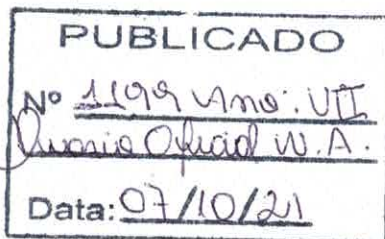 PUBLICADO
Nº 1199 Ano: VII
Diário Oficial N.A.
Data: 07/10/21